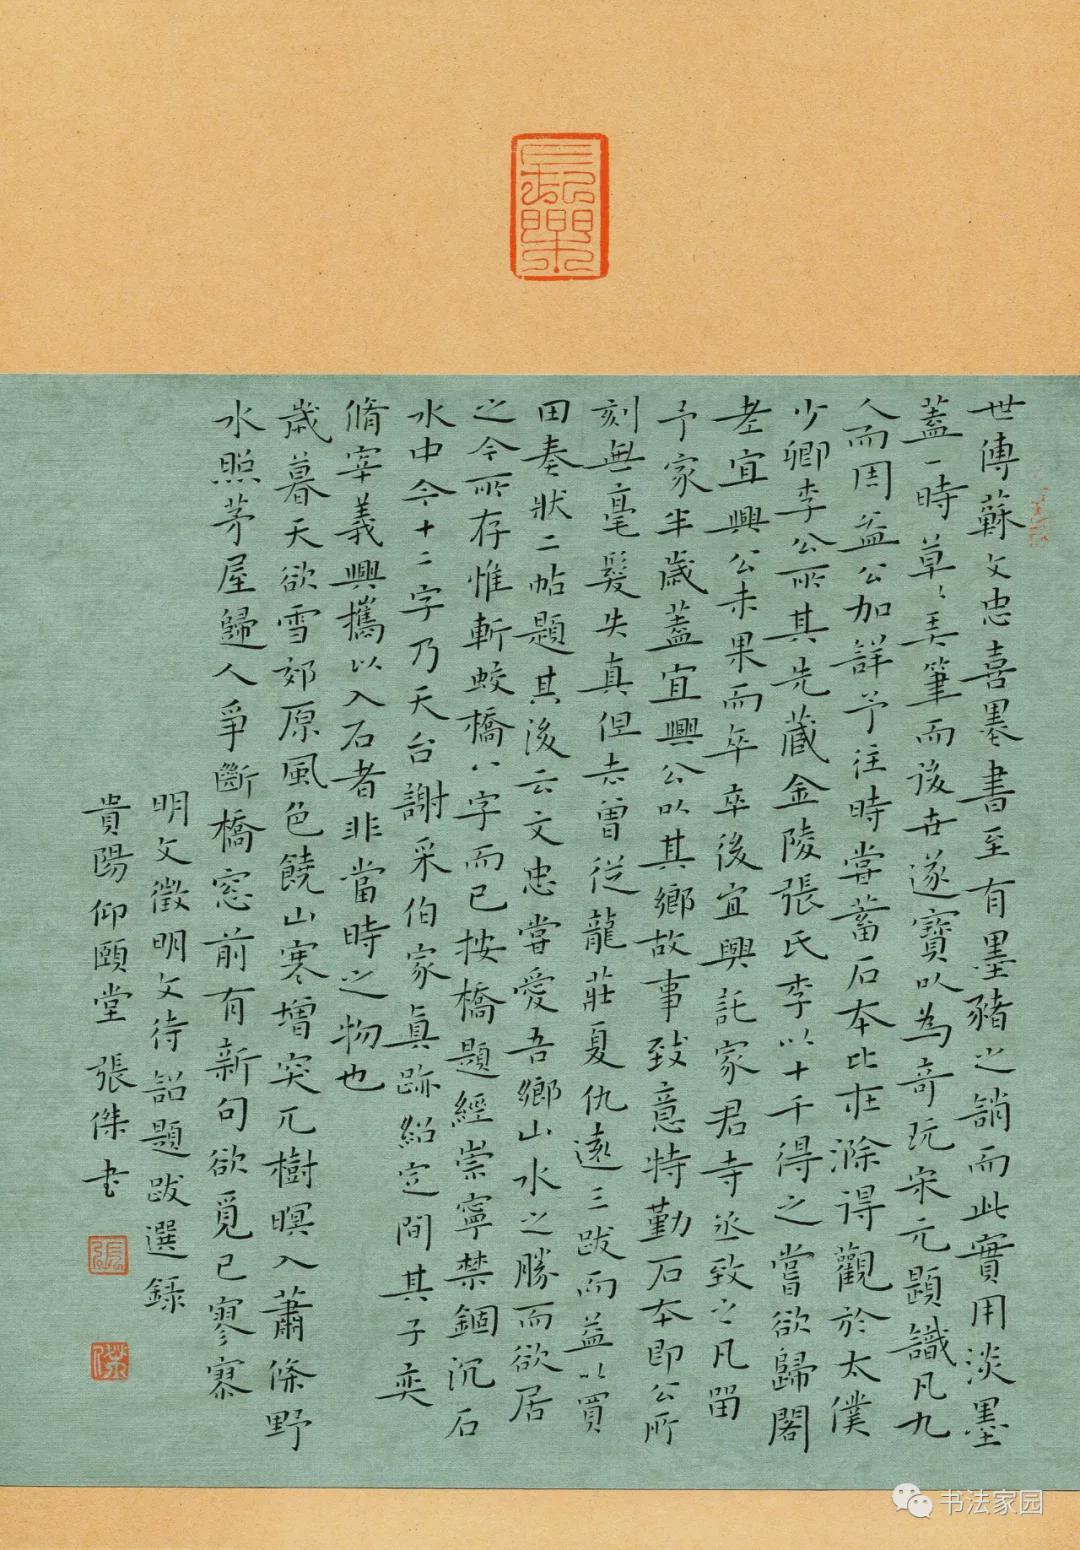 長樂
世傳蘇文忠喜墨書至有墨豬之誚而此實用淡墨
蓋一時草草弄筆而後世遂寶以為奇玩宋元題識凡九
人而周益公加詳予往時嘗蓄石本比在滁得觀於太僕
少卿李公所其先藏金陵張氏李以十千得之嘗欲歸閣
老宜興公未果而卒卒後宜興託家君寺丞致之凡留
予家半歲蓋宜興公以其鄉故事致意特勤石本即公所
刻無毫髮失真但去曾從龍莊夏仇遠三跋而益以買
田奏狀二帖題其後云文忠嘗愛吾鄉山水之勝而欲居
之今所存惟斬蛟橋八字而已按橋題經崇寧禁錮沉石
水中今十二字乃天台謝采伯家真跡紹定間其子奕
脩宰義興攜以入石者非當時之物也
歲暮天欲雪郊原風色饒山寒增突兀樹暝入蕭條野
水照茅屋歸人爭斷橋窓前有新句欲覓已寥寥
明文徵明文待詔題跋選錄
貴陽仰頤堂張傑書
張
傑
书法家园